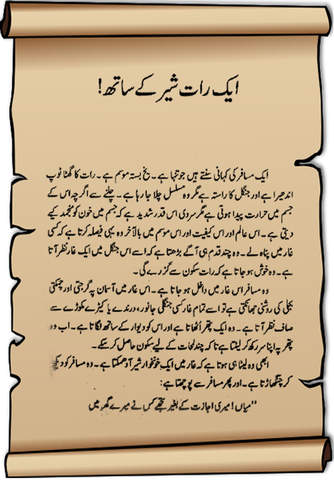 ایک رات شیر کے ساتھ!
ایک مسافر کی کہانی سنتے ہیں جو تنہا ہے۔ یخ بستہ موسم ہے۔ رات کا گھٹا ٹوپ
اندھیرا ہے اور جنگل کا راستہ ہے مگر وہ مسلسل چلا جا رہا ہے۔ چلنے سے اگرچہ اس کے
جسم میں حرارت پیدا ہوتی ہے مگر سردی اس قدر شدید ہے کہ جسم میں خون کو منجمد کیے
دیتی ہے۔ اس عالم اور اس کیفیت اور اس موسم میں بالآخر وہ یہی فیصلہ کرتا ہے کہ کسی
غار میں پناہ لے۔ وہ چند قدم ہی آگے بڑھتا ہے کہ اسے اس جنگل میں ایک غار نظر آتا
ہے۔ وہ خوش ہو جاتا ہے کہ رات سکون سے گزرے گی۔
وہ مسافر اس غار میں داخل ہو جاتا ہے۔ اس غار میں آسمان پہ گرجتی اور چمکتی
بجلی کی روشنی جھانکتی ہے تو اسے تمام غار کسی جنگلی جانور، درندے یا کیڑے مکوڑے سے
صاف نظر آتا ہے۔ وہ ایک پتھر اُٹھاتا ہے اور اس کو دیوار کے ساتھ لگاتا ہے۔ اب وہ
پتھر پہ اپنا سر رکھ کر لیٹتا ہے تاکہ چند لمحات کے لیے سکون حاصل کر سکے۔
ابھی وہ لیٹا ہی ہوتا ہے کہ غار میں ایک خونخوار شیر آ دھمکتا ہے۔ وہ مسافر کو دیکھ
کر چنگھاڑتا ہے۔ اور پھر مسافر سے پوچھتا ہے:
"میاں! میری اجازت کے بغیر تجھے کس نے میرے گھر میں